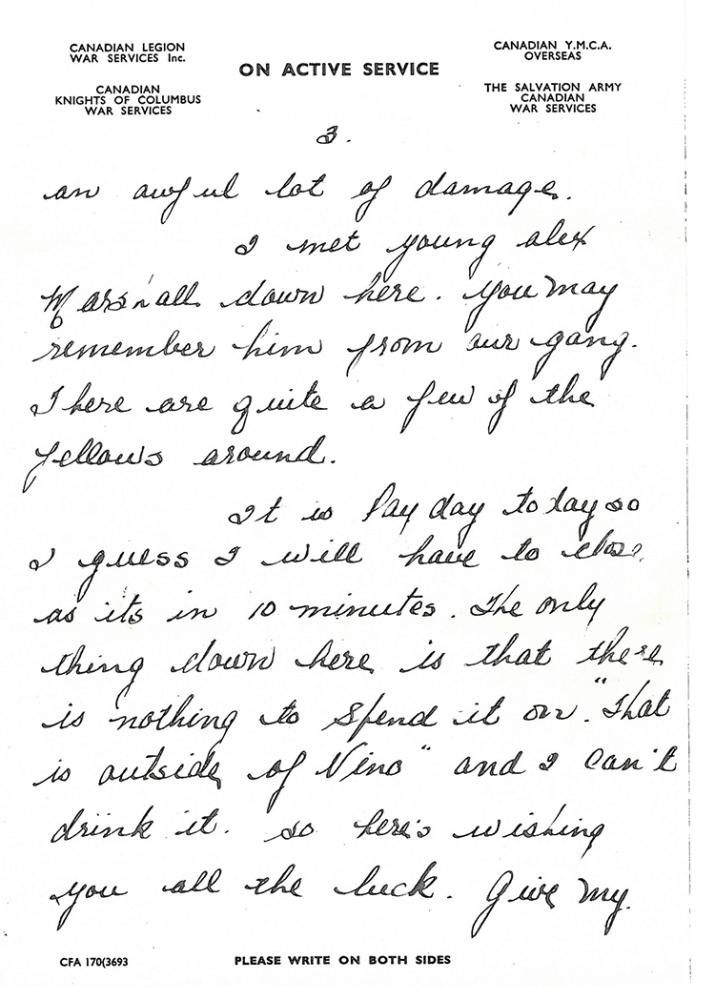 CANADIAN LEGION
WAR SERVICES Inc.
CANADIAN
KNIGHTS OF COLUMBUS
WAR SERVICES
ON ACTIVE SERVICE
CANADIAN Y.M.C.A.
OVERSEAS
THE SALVATION ARMY
CANADIAN
WAR SERVICES
3.
an awful lot of damage.
I met young alex
Marshall down here. You may
remember him from our gang.
There are quite a few of the
fellows around.
It is Pay day today so
I guess I will have to close
as its in 10 minutes. The only
thing down here is that there
is nothing to spend it on. "That
is outside of Vino" and I can't
drink it. so here's wishing
you all the luck. Give my
CFA 170(3693
PLEASE WRITE ON BOTH SIDES